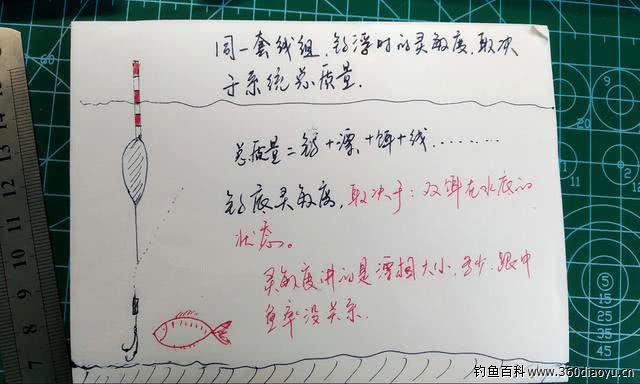 同一套线组,钓浮时的灵敏度,取决
于系统总质量.
总质量=铅+漂+饵+线........
钓底灵敏度,取决于:双饵在水底的
状态。
灵敏度讲的是漂相大小,多少.跟中
鱼率没关系.
钓鱼百科-www.360diaoyu.cn